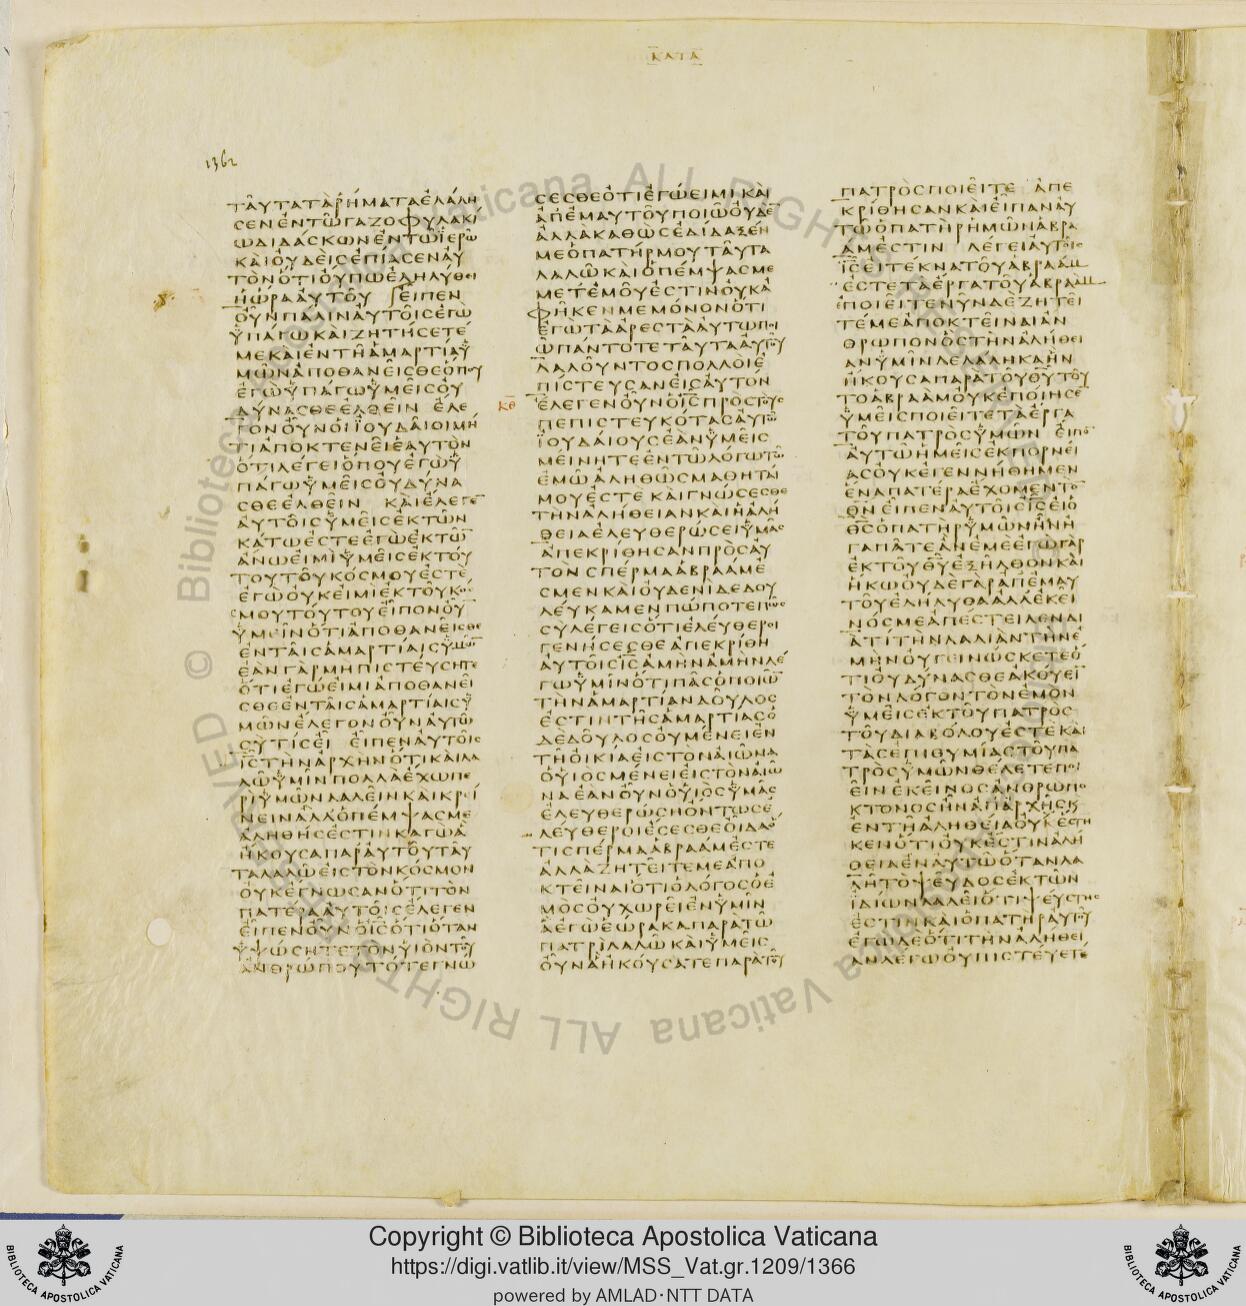 ΚΑΤΑ
1362
ΤΑΥΤΑΤΑΡΗΜΑΤΑΕΛΑΛΗ
ϹΕΝΕΝΤΩΓΑΖΟΦΥΛΑΚΙ
ΩΔΙΔΑϹΚΩΝΕΝΤΩΙΕΡΩ
ΚΑΙΟΥΔΕΙϹΕΠΙΑϹΕΝΑΥ
ΤΟΝΟΤΙΟΥΠΩΕΛΗΛΥΘΕΙ
ΗΩΡΑΑΥΤΟΥ ΕΙΠΕΝ
ΟΥΝΠΑΛΙΝΑΥΤΟΙϹΕΓΩ
ΥΠΑΓΩΚΑΙΖΗΤΗϹΕΤΕ
ΜΕΚΑΙΕΝΤΗΑΜΑΡΤΙΑΥ
ΜΩΝΑΠΟΘΑΝΕΙϹΘΕΟΠΟΥ
ΕΓΩΥΠΑΓΩΥΜΕΙϹΟΥ
ΔΥΝΑϹΘΕΕΛΘΕΙΝ ΕΛΕ
ΓΟΝΟΥΝΟΙΙΟΥΔΑΙΟΙΜΗ
ΤΙΑΠΟΚΤΕΝΕΙΕΑΥΤΟΝ
ΟΤΙΛΕΓΕΙΟΠΟΥΕΓΩΥ
ΠΑΓΩΥΜΕΙϹΟΥΔΥΝΑ
ϹΘΕΕΛΘΕΙΝ ΚΑΙΕΛΕΓΕ
ΑΥΤΟΙϹΥΜΕΙϹΕΚΤΩΝ
ΚΑΤΩΕϹΤΕΕΓΩΕΚΤΩ
ΑΝΩΕΙΜΙΥΜΕΙϹΕΚΤΟΥ
ΤΟΥΤΟΥΚΟϹΜΟΥΕϹΤΕ
ΕΓΩΟΥΚΕΙΜΙΕΚΤΟΥΚΟ
ϹΜΟΥΤΟΥΤΟΥΕΙΠΟΝΟΥ
ΥΜΕΙΝΟΤΙΑΠΟΘΑΝΕΙϹΘΕ
ΕΝΤΑΙϹΑΜΑΡΤΙΑΙϹΥΜΩ
ΕΑΝΓΑΡΜΗΠΙϹΤΕΥϹΗΤΕ
ΟΤΙΕΓΩΕΙΜΙΑΠΟΘΑΝΕΙ
ϹΘΕΕΝΤΑΙϹΑΜΑΡΤΙΑΙϹΥ
ΜΩΝΕΛΕΓΟΝΟΥΝΑΥΤΩ
ϹΥΤΙϹΕΙ ΕΙΠΕΝΑΥΤΟΙϹ
ΙϹΤΗΝΑΡΧΗΝΟΤΙΚΑΙΛΑ
ΛΩΥΜΙΝΠΟΛΛΑΕΧΩΠΕ
ΡΙΥΜΩΝΛΑΛΕΙΝΚΑΙΚΡΕΙ
ΝΕΙΝΑΛΛΟΠΕΜΨΑϹΜΕ
ΑΛΗΘΗϹΕϹΤΙΝΚΑΓΩΑ
ΗΚΟΥϹΑΠΑΡΑΥΤΟΥΤΑΥ
ΤΑΛΑΛΩΕΙϹΤΟΝΚΟϹΜΟΝ
ΟΥΚΕΓΝΩϹΑΝΟΤΙΤΟΝ
ΠΑΤΕΡΑΑΥΤΟΙϹΕΛΕΓΕΝ
ΕΙΠΕΝΟΥΝΟΙϹΟΤΙΟΤΑΝ
ΥΨΩϹΗΤΕΤΟΝΥΙΟΝΤΟΥ
ΑΝΘΡΩΠΟΥΤΟΤΕΓΝΩ
ϹΕϹΘΕΟΤΙΕΓΩΕΙΜΙΚΑΙ
ΑΠΕΜΑΥΤΟΥΠΟΙΩΟΥΔΕ
ΑΛΛΑΚΑΘΩϹΕΔΙΔΑΞΕΝ
ΜΕΟΠΑΤΗΡΜΟΥΤΑΥΤΑ
ΛΑΛΩΚΑΙΟΠΕΜΨΑϹΜΕ
ΜΕΤΕΜΟΥΕϹΤΙΝΟΥΚΑ
ΦΗΚΕΝΜΕΜΟΝΟΝΟΤΙ
ΕΓΩΤΑΑΡΕϹΤΑΑΥΤΩΠΟΙ
ΩΠΑΝΤΟΤΕΤΑΥΤΑΑΥΤΟΥ
ΛΑΛΟΥΝΤΟϹΠΟΛΛΟΙΕ
ΠΙϹΤΕΥϹΑΝΕΙϹΑΥΤΟΝ
ΚΘ
ΕΛΕΓΕΝΟΥΝΟΙϹΠΡΟϹΤΟΥϹ
ΠΕΠΙϹΤΕΥΚΟΤΑϹΑΥΤΩ
ΙΟΥΔΑΙΟΥϹΕΑΝΥΜΕΙϹ
ΜΕΙΝΗΤΕΕΝΤΩΛΟΓΩΤΩ
ΕΜΩΑΛΗΘΩϹΜΑΘΗΤΑΙ
ΜΟΥΕϹΤΕΚΑΙΓΝΩϹΕϹΘΕ
ΤΗΝΑΛΗΘΕΙΑΝΚΑΙΗΑΛΗ
ΘΕΙΑΕΛΕΥΘΕΡΩϹΕΙΥΜΑϹ
ΑΠΕΚΡΙΘΗϹΑΝΠΡΟϹΑΥ
ΤΟΝϹΠΕΡΜΑΑΒΡΑΑΜΕ
ϹΜΕΝΚΑΙΟΥΔΕΝΙΔΕΔΟΥ
ΛΕΥΚΑΜΕΝΠΩΠΟΤΕΠΩϹ
ϹΥΛΕΓΕΙϹΟΤΙΕΛΕΥΘΕΡΟΙ
ΓΕΝΗϹΕϹΘΕΑΠΕΚΡΙΘΗ
ΑΥΤΟΙϹΙϹΑΜΗΝΑΜΗΝΛΕ
ΓΩΥΜΙΝΟΤΙΠΑϹΟΠΟΙΩ
ΤΗΝΑΜΑΡΤΙΑΝΔΟΥΛΟϹ
ΕϹΤΙΝΤΗϹΑΜΑΡΤΙΑϹΟ
ΔΕΔΟΥΛΟϹΟΥΜΕΝΕΙΕΝ
ΤΗΟΙΚΙΑΕΙϹΤΟΝΑΙΩΝΑ
ΟΥΙΟϹΜΕΝΕΙΕΙϹΤΟΝΑΙΩ
ΝΑΕΑΝΟΥΝΟΥΙΟϹΥΜΑϹ
ΕΛΕΥΘΕΡΩϹΗΟΝΤΩϹΕ
ΛΕΥΘΕΡΟΙΕϹΕϹΘΕΟΙΔΑΟ
ΤΙϹΠΕΡΜΑΑΒΡΑΑΜΕϹΤΕ
ΑΛΛΑΖΗΤΕΙΤΕΜΕΑΠΟ
ΚΤΕΙΝΑΙΟΤΙΟΛΟΓΟϹΟΕ
ΜΟϹΟΥΧΩΡΕΙΕΝΥΜΙΝ
ΑΕΓΩΕΩΡΑΚΑΠΑΡΑΤΩ
ΠΑΤΡΙΛΑΛΩΚΑΙΥΜΕΙϹ
ΟΥΝΑΗΚΟΥϹΑΤΕΠΑΡΑΤΟΥ
ΠΑΤΡΟϹΠΟΙΕΙΤΕ ΑΠΕ
ΚΡΙΘΗϹΑΝΚΑΙΕΙΠΑΝΑΥ
ΤΩΟΠΑΤΗΡΗΜΩΝΑΒΡΑ
ΑΜΕϹΤΙΝ ΛΕΓΕΙΑΥΤΟΙϹ
ΙϹΕΙΤΕΚΝΑΤΟΥΑΒΡΑΑΜ
ΕϹΤΕΤΑΕΡΓΑΤΟΥΑΒΡΑΑΜ
ΠΟΙΕΙΤΕΝΥΝΔΕΖΗΤΕΙ
ΤΕΜΕΑΠΟΚΤΕΙΝΑΙΑΝ
ΘΡΩΠΟΝΟϹΤΗΝΑΛΗΘΕΙ
ΑΝΥΜΙΝΛΕΛΑΛΗΚΑΗΝ
ΗΚΟΥϹΑΠΑΡΑΤΟΥΘΥΤΟΥ
ΤΟΑΒΡΑΑΜΟΥΚΕΠΟΙΗϹΕ
ΥΜΕΙϹΠΟΙΕΙΤΕΤΑΕΡΓΑ
ΤΟΥΠΑΤΡΟϹΥΜΩΝ ΕΙΠΟ
ΑΥΤΩΗΜΕΙϹΕΚΠΟΡΝΕΙ
ΑϹΟΥΚΕΓΕΝΝΗΘΗΜΕΝ
ΕΝΑΠΑΤΕΡΑΕΧΟΜΕΝΤΟ
ΘΝΕΙΠΕΝΑΥΤΟΙϹΙϹΕΙΟ
ΘϹΟΠΑΤΗΡΥΜΩΝΗΝΗ
ΓΑΠΑΤΕΑΝΕΜΕΕΓΩΓΑΡ
ΕΚΤΟΥΘΥΕΞΗΛΘΟΝΚΑΙ
ΗΚΩΟΥΔΕΓΑΡΑΠΕΜΑΥ
ΤΟΥΕΛΗΛΥΘΑΑΛΛΕΚΕΙ
ΝΟϹΜΕΑΠΕϹΤΕΙΛΕΝΔΙ
ΑΤΙΤΗΝΛΑΛΙΑΝΤΗΝΕ
ΜΗΝΟΥΓΕΙΝΩϹΚΕΤΕΟ
ΤΙΟΥΔΥΝΑϹΘΕΑΚΟΥΕΙ
ΤΟΝΛΟΓΟΝΤΟΝΕΜΟΝ
ΥΜΕΙϹΕΚΤΟΥΠΑΤΡΟϹ
ΤΟΥΔΙΑΒΟΛΟΥΕϹΤΕΚΑΙ
ΤΑϹΕΠΙΘΥΜΙΑϹΤΟΥΠΑ
ΤΡΟϹΥΜΩΝΘΕΛΕΤΕΠΟΙ
ΕΙΝΕΚΕΙΝΟϹΑΝΘΡΩΠΟ
ΚΤΟΝΟϹΗΝΑΠΑΡΧΗϹΚ
ΕΝΤΗΑΛΗΘΕΙΑΟΥΚΕϹΤΗ
ΚΕΝΟΤΙΟΥΚΕϹΤΙΝΑΛΗ
ΘΕΙΑΕΝΑΥΤΩΟΤΑΝΛΑ
ΛΗΤΟΨΕΥΔΟϹΕΚΤΩΝ
ΙΔΙΩΝΛΑΛΕΙΟΤΙΨΕΥϹΤΗϹ
ΕϹΤΙΝΚΑΙΟΠΑΤΗΡΑΥΤΟΥ
ΕΓΩΔΕΟΤΙΤΗΝΑΛΗΘΕΙ
ΑΝΛΕΓΩΟΥΠΙϹΤΕΥΕΤΕ
Copyright © Biblioteca Apostolica Vaticana
https://digi.vatlib.it/view/MSS_Vat.gr.1209/1366
powered by AMLAD·NTT DATA
BIBLIOTECA APOSTOLICA VATICANA
BIBLIOTECA APOSTOLICA VATICANA